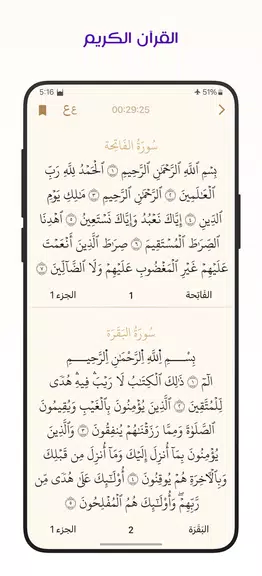 القرآن الكريم
5:16
51%
عع
00:29:25
سُورَةُ الفَاتِحَة
بِسْمِ ٱللَّهِ ٱلرَّحْمَٰنِ ٱلرَّحِيمِ ١ ٱلْحَمْدُ لِلَّهِ رَبِّ
ٱلْعَٰلَمِينَ ٢ ٱلرَّحْمَٰنِ ٱلرَّحِيمِ ٣ مَٰلِكِ يَوْمِ
ٱلدِّينِ ٤ إِيَّاكَ نَعْبُدُ وَإِيَّاكَ نَسْتَعِينُ ٥ ٱهْدِنَا
ٱلصِّرَٰطَ ٱلْمُسْتَقِيمَ ٦ صِرَٰطَ ٱلَّذِينَ أَنْعَمْتَ
عَلَيْهِمْ غَيْرِ ٱلْمَغْضُوبِ عَلَيْهِمْ وَلَا ٱلضَّآلِّينَ ٧
الفَاتِحة 1 الجزء ١
سُورَةُ البَقَرَة
بِسْمِ ٱللَّهِ ٱلرَّحْمَٰنِ ٱلرَّحِيمِ
الٓمٓ ١ ذَٰلِكَ ٱلْكِتَٰبُ لَا رَيْبَ فِيهِ هُدًى
لِّلْمُتَّقِينَ ٢ ٱلَّذِينَ يُؤْمِنُونَ بِٱلْغَيْبِ وَيُقِيمُونَ
ٱلصَّلَوٰةَ وَمِمَّا رَزَقْنَٰهُمْ يُنفِقُونَ ٣ وَٱلَّذِينَ
يُؤْمِنُونَ بِمَآ أُنزِلَ إِلَيْكَ وَمَآ أُنزِلَ مِن قَبْلِكَ
وَبِٱلْءَاخِرَةِ هُمْ يُوقِنُونَ ٤ أُو۟لَٰٓئِكَ عَلَىٰ هُدًى مِّن
رَّبِّهِمْ وَأُو۟لَٰٓئِكَ هُمُ ٱلْمُفْلِحُونَ ٥
البَقَرَة 2 الجزء ١